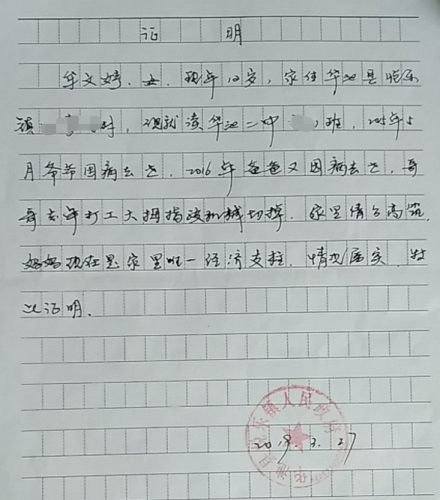 证 明
牟文婷,女,现年18岁,家住华池县悦乐
镇 村,现就读华池二中 班,2015年5
月爷爷因病去世,2016年爸爸又因病去世,哥
哥去年打工大拇指被机械切掉.家里债台高筑,
妈妈现在是家里唯一经济支柱.情况属实,特
此证明.
乐镇人民政府
2019.3.27